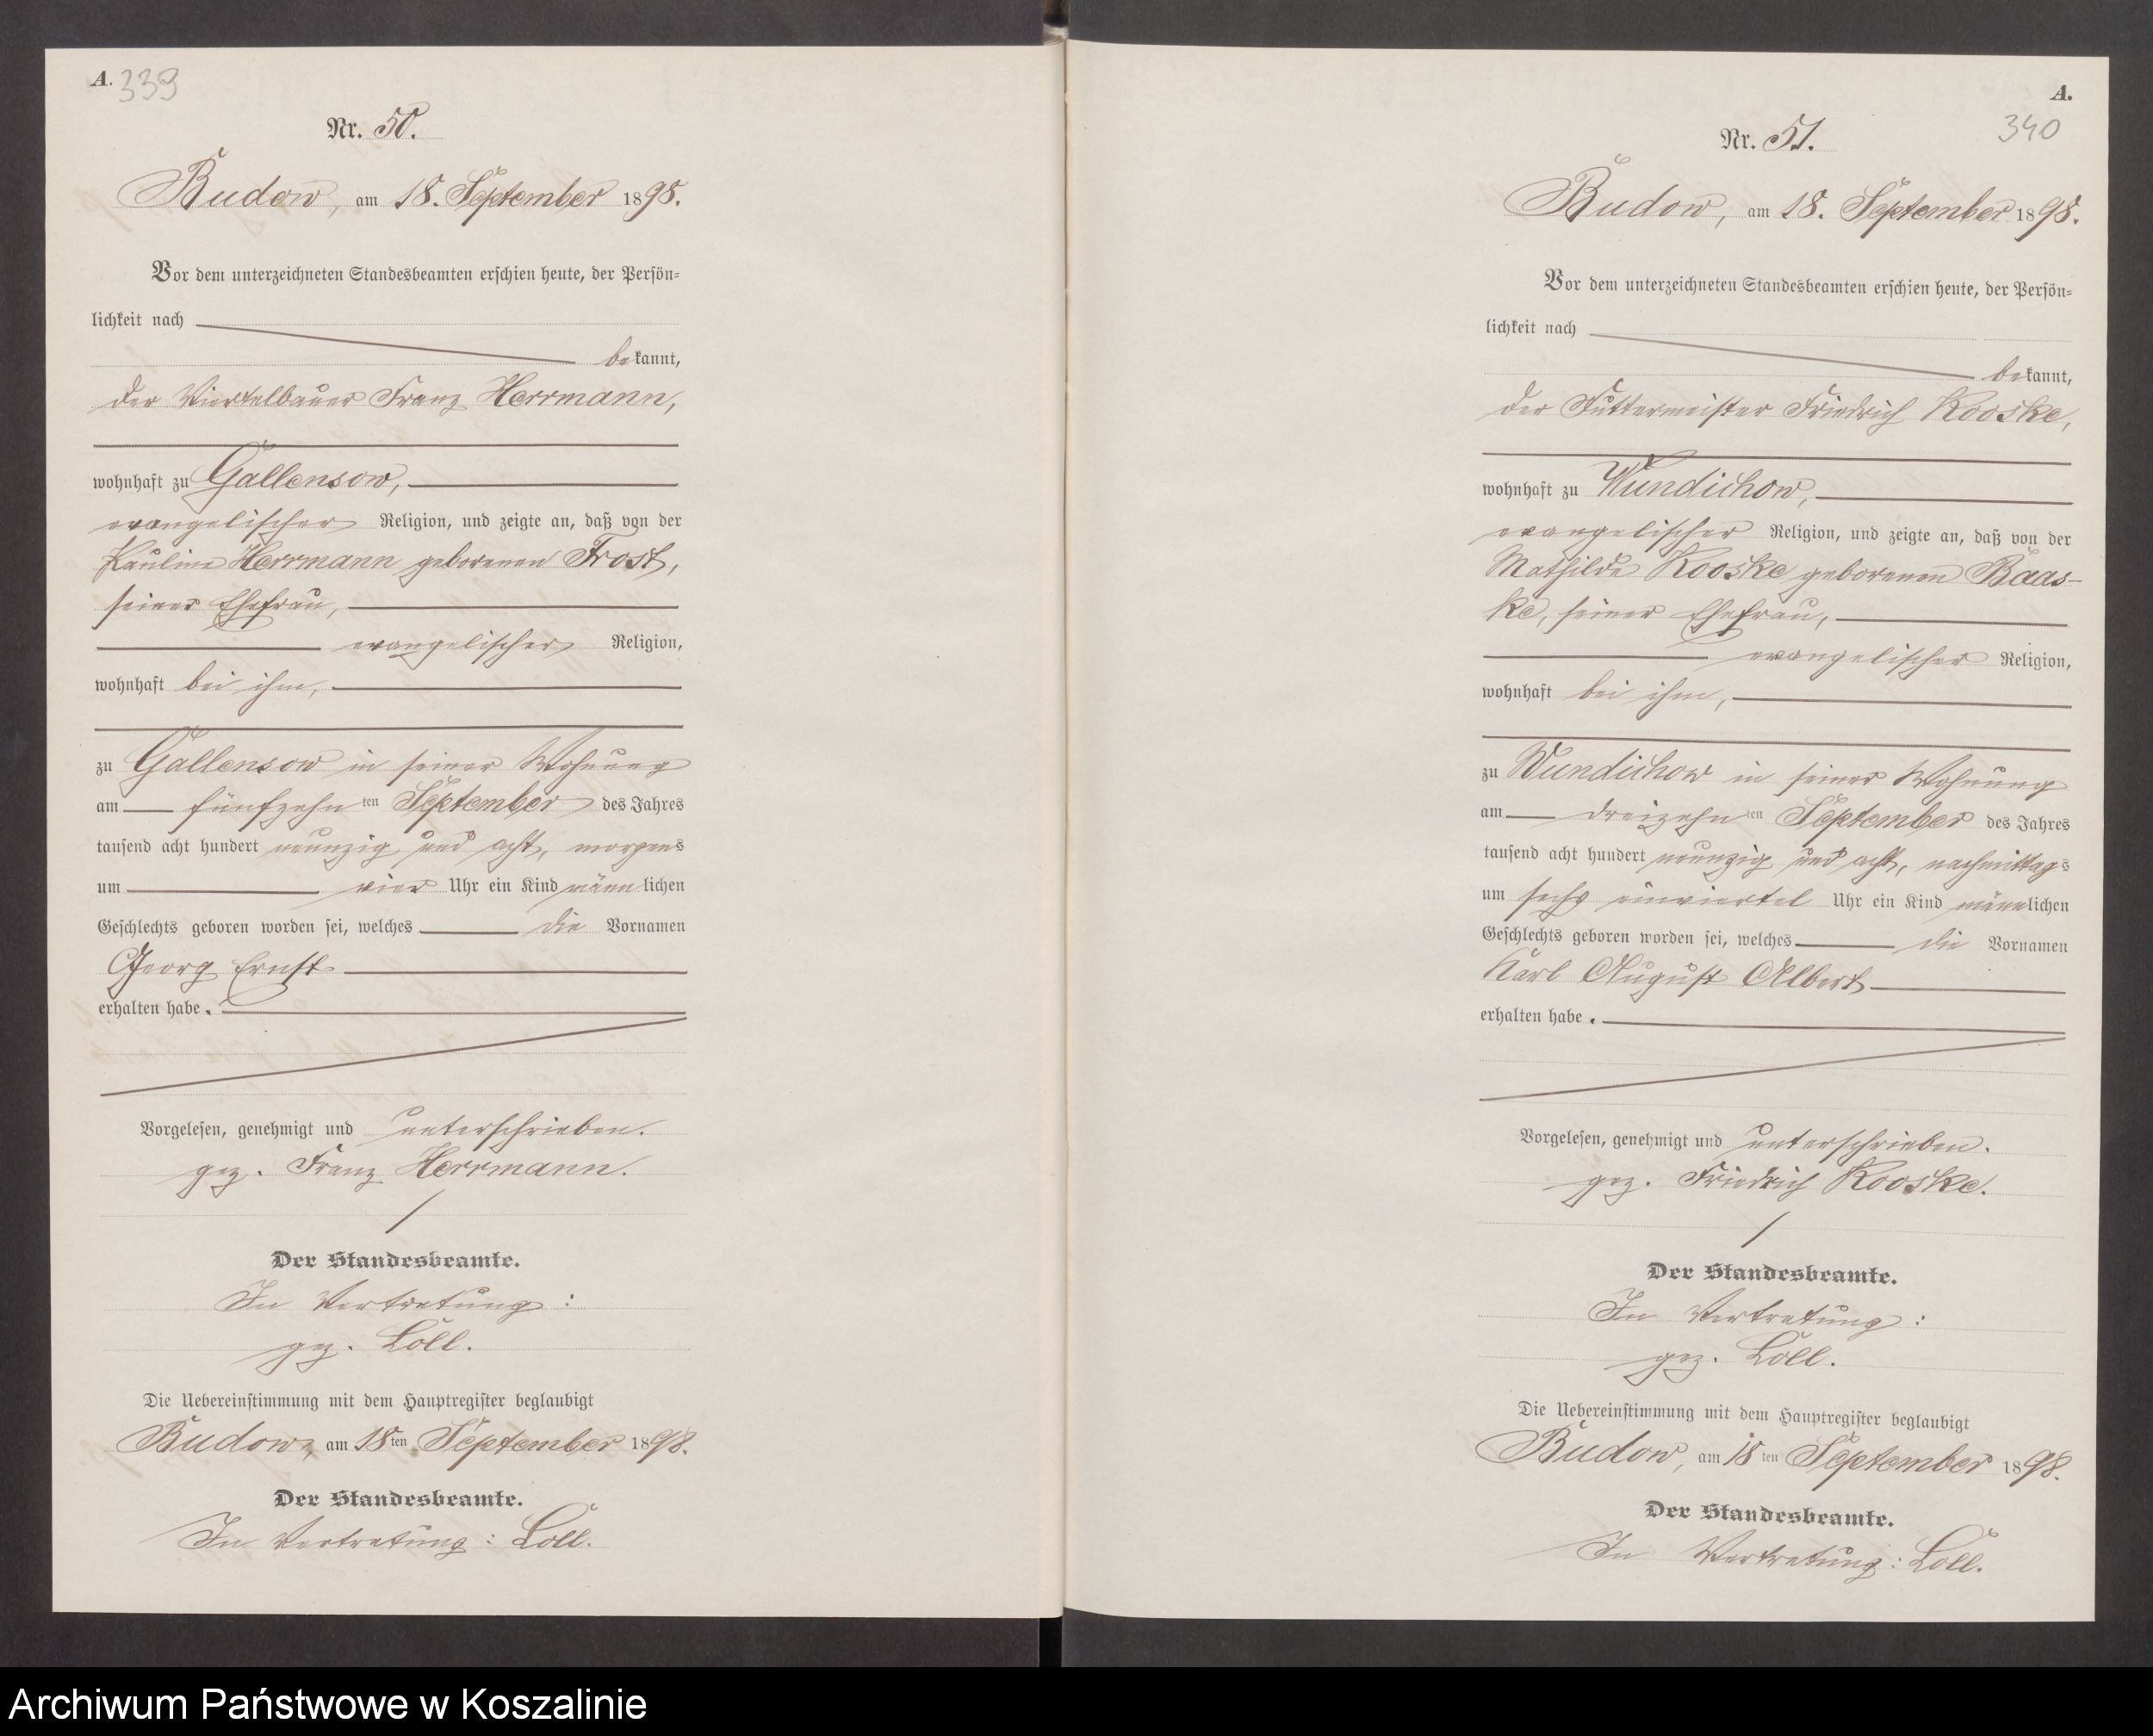 A. 339
Nr. 50.
Budow, am 18. September 1898.
Vor dem unterzeichneten Standesbeamten erschien heute, der Persön-
lichkeit nach
bekannt,
der Viertelbauer Franz Herrmann,
wohnhaft zu Gallensow,
evangelischer Religion, und zeigte an, daß von der
Pauline Herrmann geborenen Frost,
seiner Ehefrau,
evangelischer Religion,
wohnhaft bei ihm,
zu Gallensow in seiner Wohnung
am fünfzehn ten September des Jahres
tausend acht hundert neunzig und acht, morgens
um vier Uhr ein Kind männlichen
Geschlechts geboren worden sei, welches die Vornamen
Georg Ernst
erhalten habe.
Vorgelesen, genehmigt und unterschrieben.
gez. Franz Herrmann.
Der Standesbeamte.
In Vertretung:
gez. Loll.
Die Uebereinstimmung mit dem Hauptregister beglaubigt
Budow, am 18ten September 1898.
Der Standesbeamte.
In Vertretung: Loll.
A.
340
Nr. 51.
Budow, am 18. September 1898.
Vor dem unterzeichneten Standesbeamten erschien heute, der Persön-
lichkeit nach
bekannt,
der Futtermeister Friedrich Kooske,
wohnhaft zu Wundichow,
evangelischer Religion, und zeigte an, daß von der
Mathilde Kooske geborenen Baas-
ke, seiner Ehefrau,
evangelischer Religion,
wohnhaft bei ihm,
zu Wundichow in seiner Wohnung
am dreizehn ten September des Jahres
tausend acht hundert neunzig und acht, nachmittags
um sechs einviertel Uhr ein Kind männlichen
Geschlechts geboren worden sei, welches die Vornamen
Karl August Albert
erhalten habe.
Vorgelesen, genehmigt und unterschrieben.
gez. Friedrich Kooske.
Der Standesbeamte.
In Vertretung:
gez. Loll.
Die Uebereinstimmung mit dem Hauptregister beglaubigt
Budow, am 18 ten September 1898.
Der Standesbeamte.
In Vertretung: Loll.
Archiwum Państwowe w Koszalinie